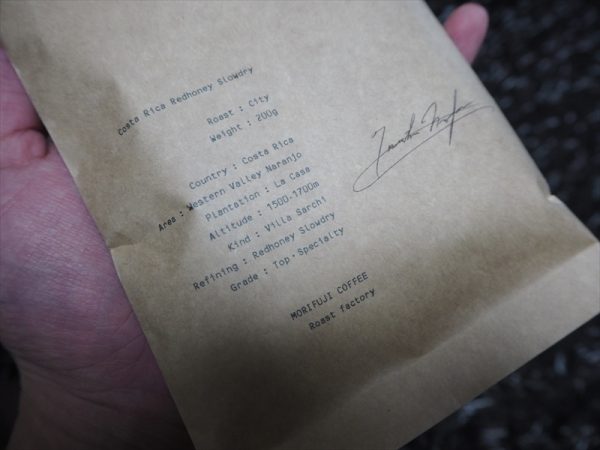 Costa Rica Redhoney Slowdry
Roast : City
Weight : 200g
Country : Costa Rica
Area : Western Valley Naranjo
Plantation : La Casa
Altitude : 1500-1700m
Kind : Villa Sarchi
Refining : Redhoney Slowdry
Grade : Top·Specialty
MORIFUJI COFFEE
Roast factory